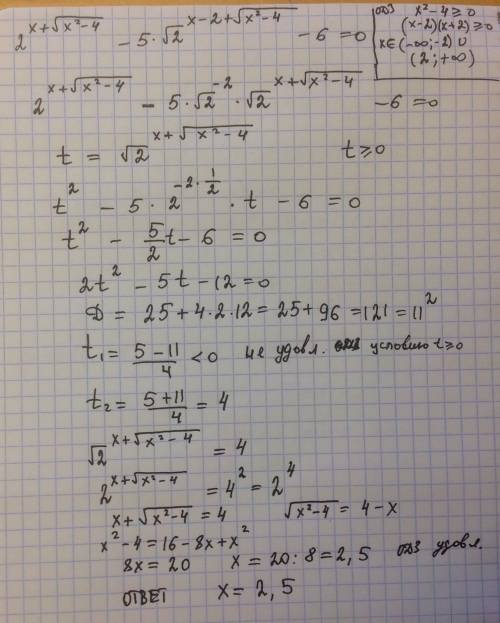 2^{x+√(x²-4)} - 5·√2^{x-2+√(x²-4)} - 6 = 0
ОДЗ x²-4 ≥ 0
(x-2)(x+2) ≥ 0
x∈(-∞;-2)∪
(2;+∞)
2^{x+√(x²-4)} - 5·√2^{-2}·√2^{x+√(x²-4)} -6 = 0
t = √2^{x+√(x²-4)} t ≥ 0
t² - 5·2^{-2·1/2}·t - 6 = 0
t² - 5/2 t - 6 = 0
2t² - 5t - 12 = 0
D = 25+4·2·12 = 25+96 = 121 = 11²
t₁ = (5-11)/4 < 0 не удовл. условию t ≥ 0
t₂ = (5+11)/4 = 4
√2^{x+√(x²-4)} = 4
2^{x+√(x²-4)} = 4² = 2⁴
x+√(x²-4) = 4 √(x²-4) = 4-x
x²-4 = 16-8x+x²
8x = 20 x = 20:8 = 2,5 ОДЗ удовл.
ОТВЕТ x = 2,5